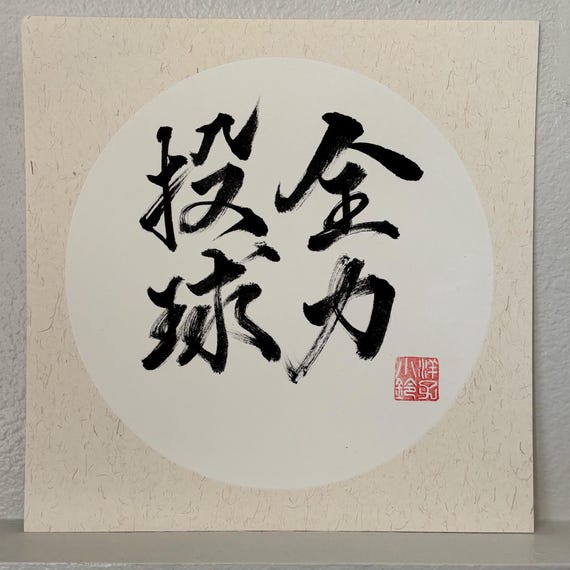 全力
投球
洋子
小鈴